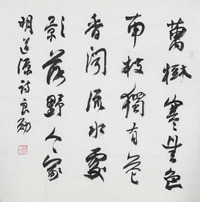 萬樹寒無色
南枝獨有花
香聞流水處
影落野人家
明道源詩良